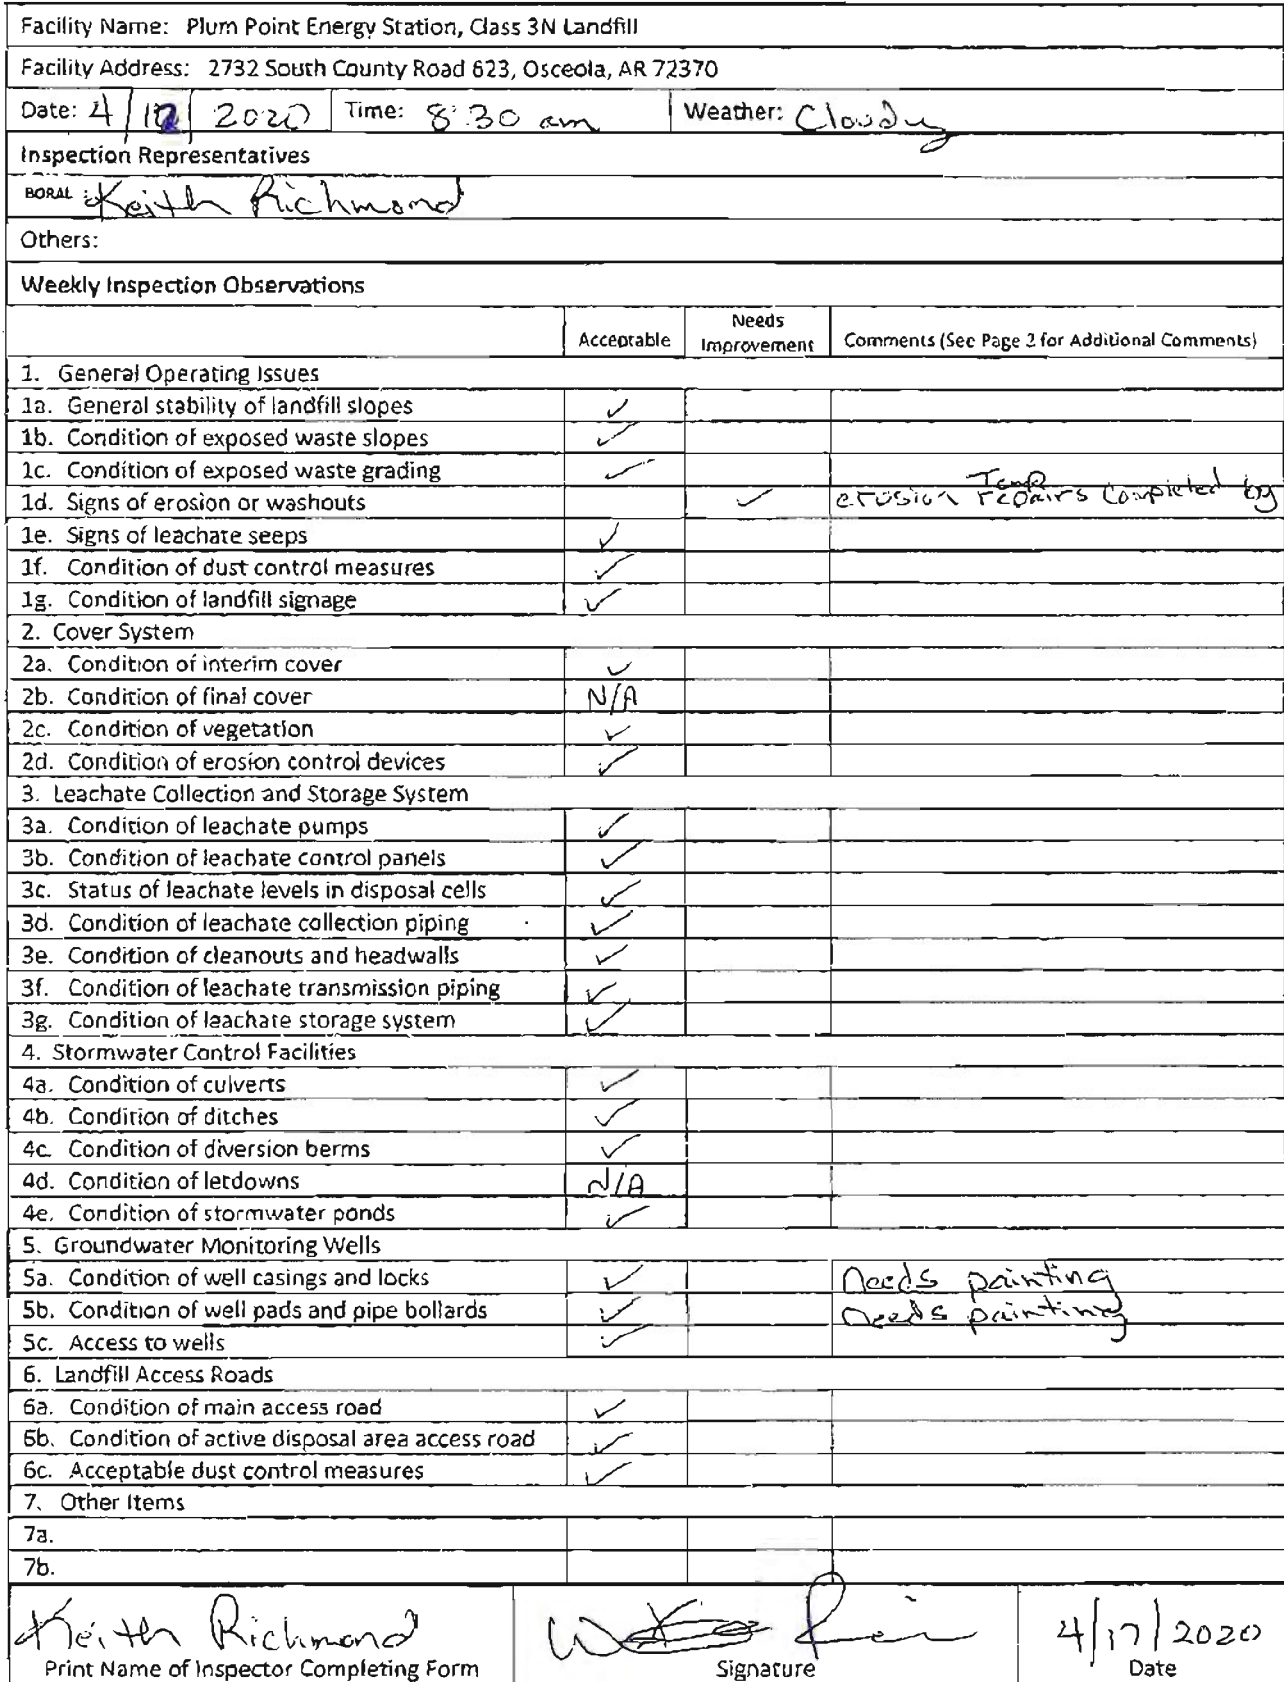 Facility Name: Plum Point Energy Station, Class 3N Landfill
Facility Address: 2732 South County Road 623, Osceola, AR 72370
Date: 4/ /2020 Time: 8:30 am Weather: Cloudy
Inspection Representatives
BORAL: Keith Richmond
Others:
Weekly Inspection Observations
Acceptable Needs Improvement Comments (See Page 2 for Additional Comments)
1. General Operating Issues
1a. General stability of landfill slopes ✓
1b. Condition of exposed waste slopes ✓
1c. Condition of exposed waste grading ✓
1d. Signs of erosion or washouts ✓ erosion Temp repairs completed by
1e. Signs of leachate seeps ✓
1f. Condition of dust control measures ✓
1g. Condition of landfill signage ✓
2. Cover System
2a. Condition of interim cover ✓
2b. Condition of final cover N/A
2c. Condition of vegetation ✓
2d. Condition of erosion control devices ✓
3. Leachate Collection and Storage System
3a. Condition of leachate pumps ✓
3b. Condition of leachate control panels ✓
3c. Status of leachate levels in disposal cells ✓
3d. Condition of leachate collection piping ✓
3e. Condition of cleanouts and headwalls ✓
3f. Condition of leachate transmission piping ✓
3g. Condition of leachate storage system ✓
4. Stormwater Control Facilities
4a. Condition of culverts ✓
4b. Condition of ditches ✓
4c. Condition of diversion berms ✓
4d. Condition of letdowns N/A
4e. Condition of stormwater ponds ✓
5. Groundwater Monitoring Wells
5a. Condition of well casings and locks ✓ needs painting
5b. Condition of well pads and pipe bollards ✓ needs painting
5c. Access to wells ✓
6. Landfill Access Roads
6a. Condition of main access road ✓
6b. Condition of active disposal area access road ✓
6c. Acceptable dust control measures ✓
7. Other Items
7a.
7b.
Keith Richmond 4/17/2020
Print Name of Inspector Completing Form Signature Date